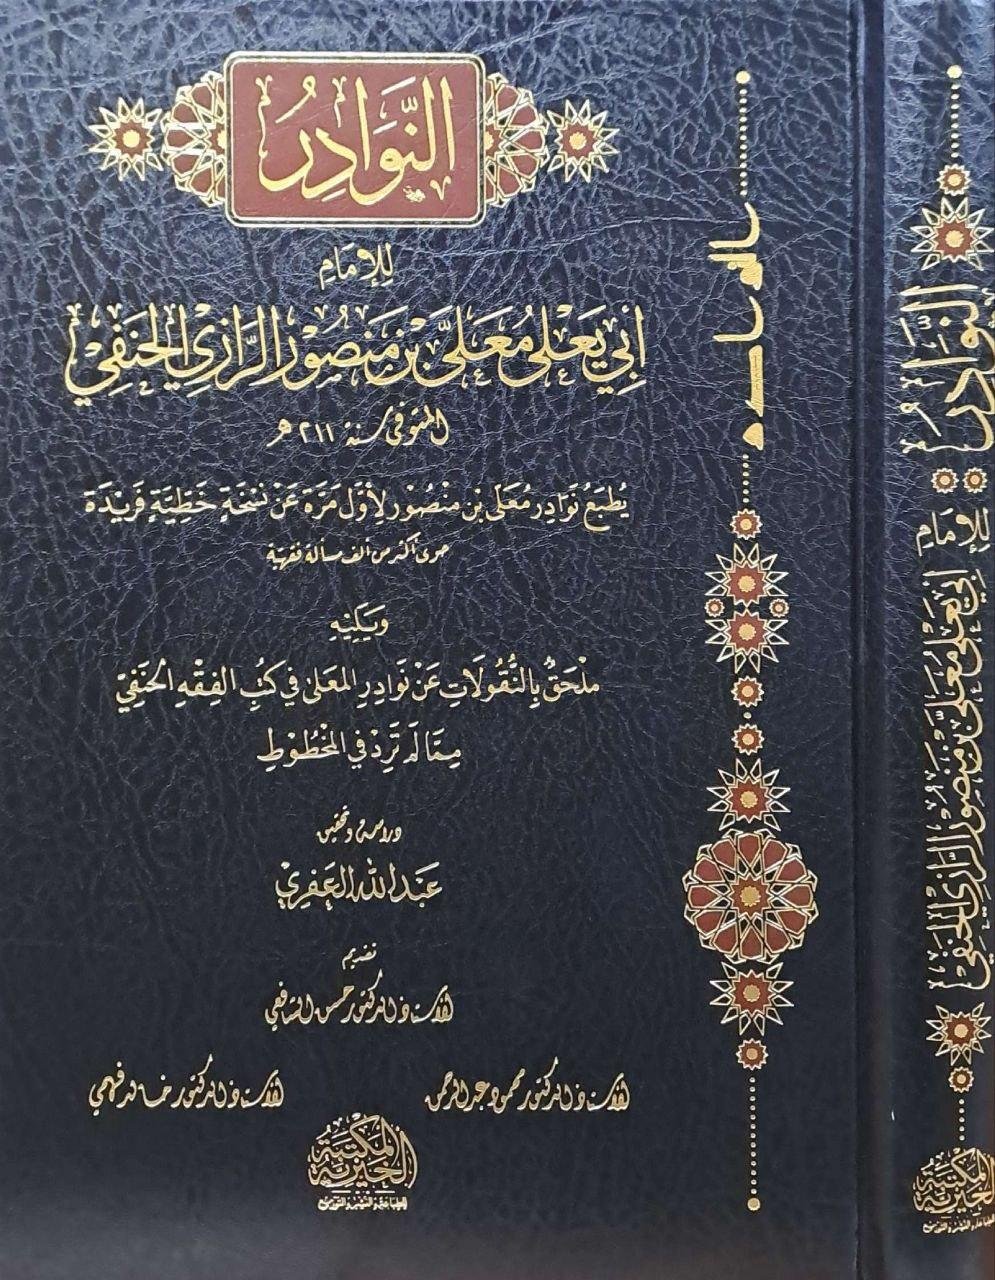 النَّوَادِرُ
لِلإِمَامِ
أَبِي يَعْلَى مُعَلَّى بْنِ مَنْصُورٍ الرَّازِيِّ الحَنَفِيِّ
المتوفى سنة ٢١١ هـ
يُطْبَعُ نَوَادِر مُعَلَى بْنِ مَنْصُوْر لِأَوَّلِ مَرَّة عَنْ نُسْخَةٍ خَطِّيَّةٍ فَرِيْدَة
حوى أكثر من ألف مسألة فقهية
وَيَلِيْهِ
مُلْحَقٌ بِالنُّقُولَاتِ عَنْ نَوَادِرِ المُعَلَى فِي كُتُبِ الفِقْهِ الحَنَفِيِّ
مِمَّا لَمْ تَرِدْ فِي المَخْطُوطِ
دراسة وتحقيق
عَبْد اللّٰه العَفْرِي
تقديم
الأستاذ الدكتور حسن الشافعي
الأستاذ الدكتور محمود عبد الرحمن
الأستاذ الدكتور خالد فهمي
المكتبة
الخيرية
للطباعة والنشر والتوزيع
النَّوَادِرُ
لِلإِمَامِ
أَبِي يَعْلَى مُعَلَّى بْنِ مَنْصُورٍ الرَّازِيِّ الحَنَفِيِّ
المكتبة
الخيرية
للطباعة والنشر والتوزيع